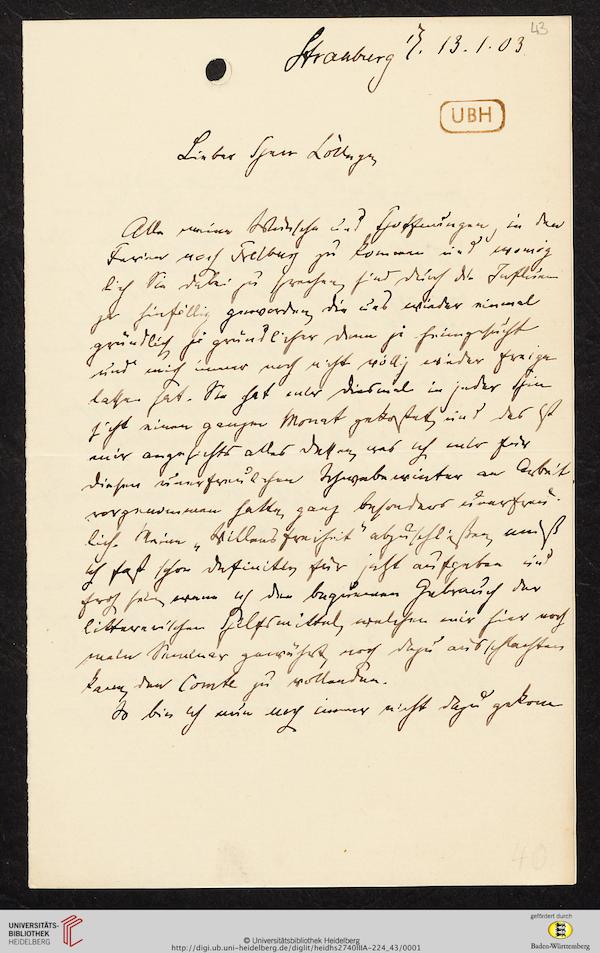 43
Strassburg 13.1.03
UBH
Lieber Herr Kollege,
Alle meine Wünsche und Hoffnungen, in den
Ferien nach Freiburg zu kommen und womög-
lich Sie dabei zu sprechen, sind durch die Influen-
za hinfällig geworden, die uns wieder einmal
gründlich, ja gründlicher denn je heimgesucht
und mich immer noch nicht völlig wieder freige-
lassen hat. Sie hat mir diesmal in jeder Hin-
sicht einen ganzen Monat gekostet, und das ist
mir angesichts alles dessen, was ich mir für
diesen unerfreulichen an Arbeit
vorgenommen hatte, ganz besonders unerfreu-
lich. Meine „Willensfreiheit" abzuschließen, muß
ich fast schon definitiv für jetzt aufgeben und
froh sein, wenn ich den bequemen Gebrauch der
litterarischen Hilfsmittel, welchen mir hier noch
mein Seminar gewährt, noch dazu ausschlachten
kann, den Comte zu vollenden.
So bin ich nun noch immer nicht dazu gekom-
40
UNIVERSITÄTS-
BIBLIOTHEK
HEIDELBERG
© Universitätsbibliothek Heidelberg
http://digi.ub.uni-heidelberg.de/diglit/heidhs2740IIIA-224_43/0001
gefördert durch
Baden-Württemberg